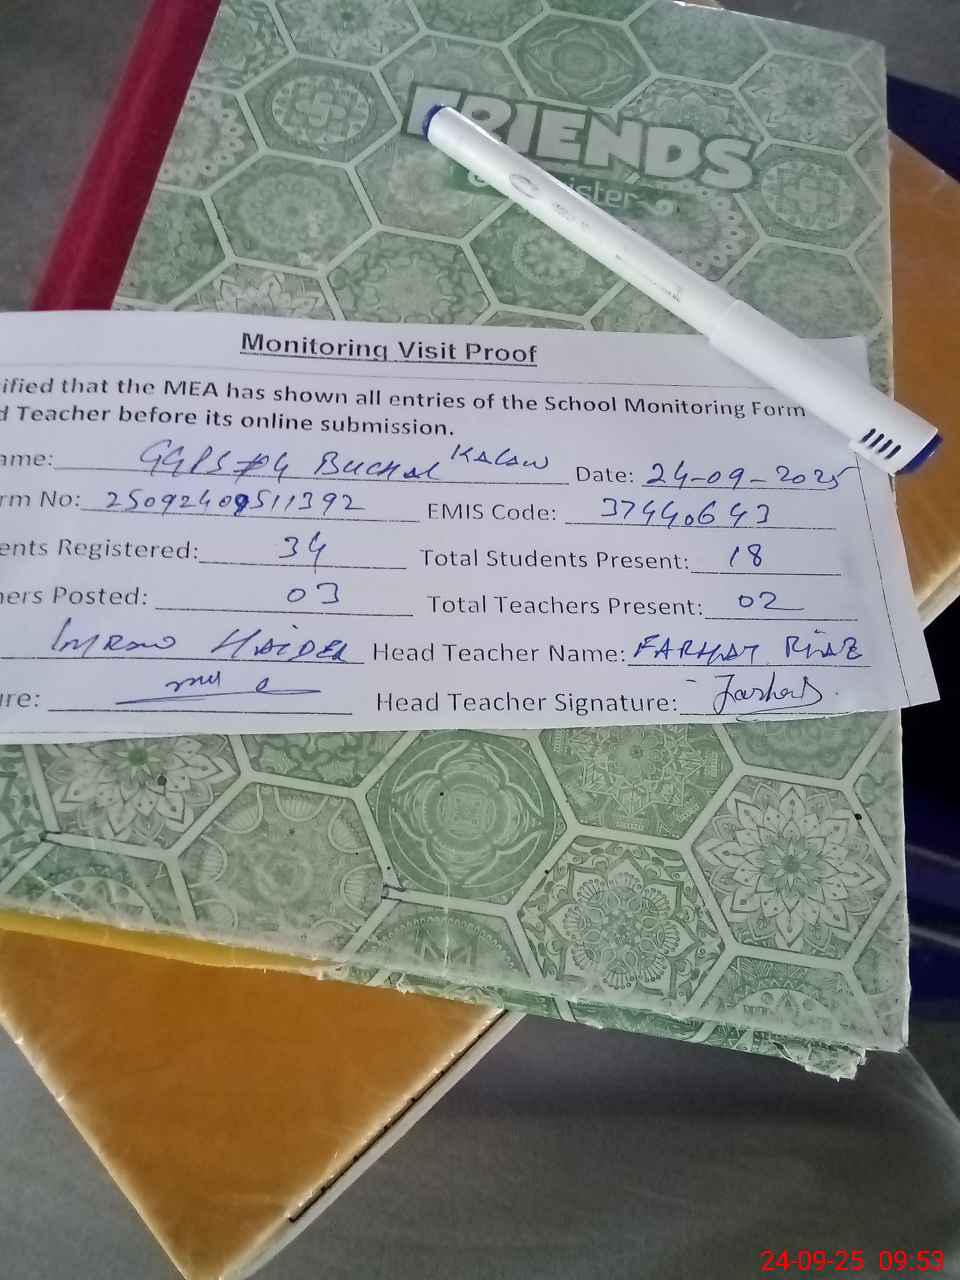 FRIENDS
ister
Monitoring Visit Proof
ified that the MEA has shown all entries of the School Monitoring Form
d Teacher before its online submission.
ame: GGPS #4 BUCHAL KALAN Date: 24-09-2025
rm No: 25092409511392 EMIS Code: 37440643
ents Registered: 34 Total Students Present: 18
ners Posted: 03 Total Teachers Present: 02
IMRAN HAIDER Head Teacher Name: FARHAT RIAZ
ure: Head Teacher Signature: Farhat
24-09-25 09:53